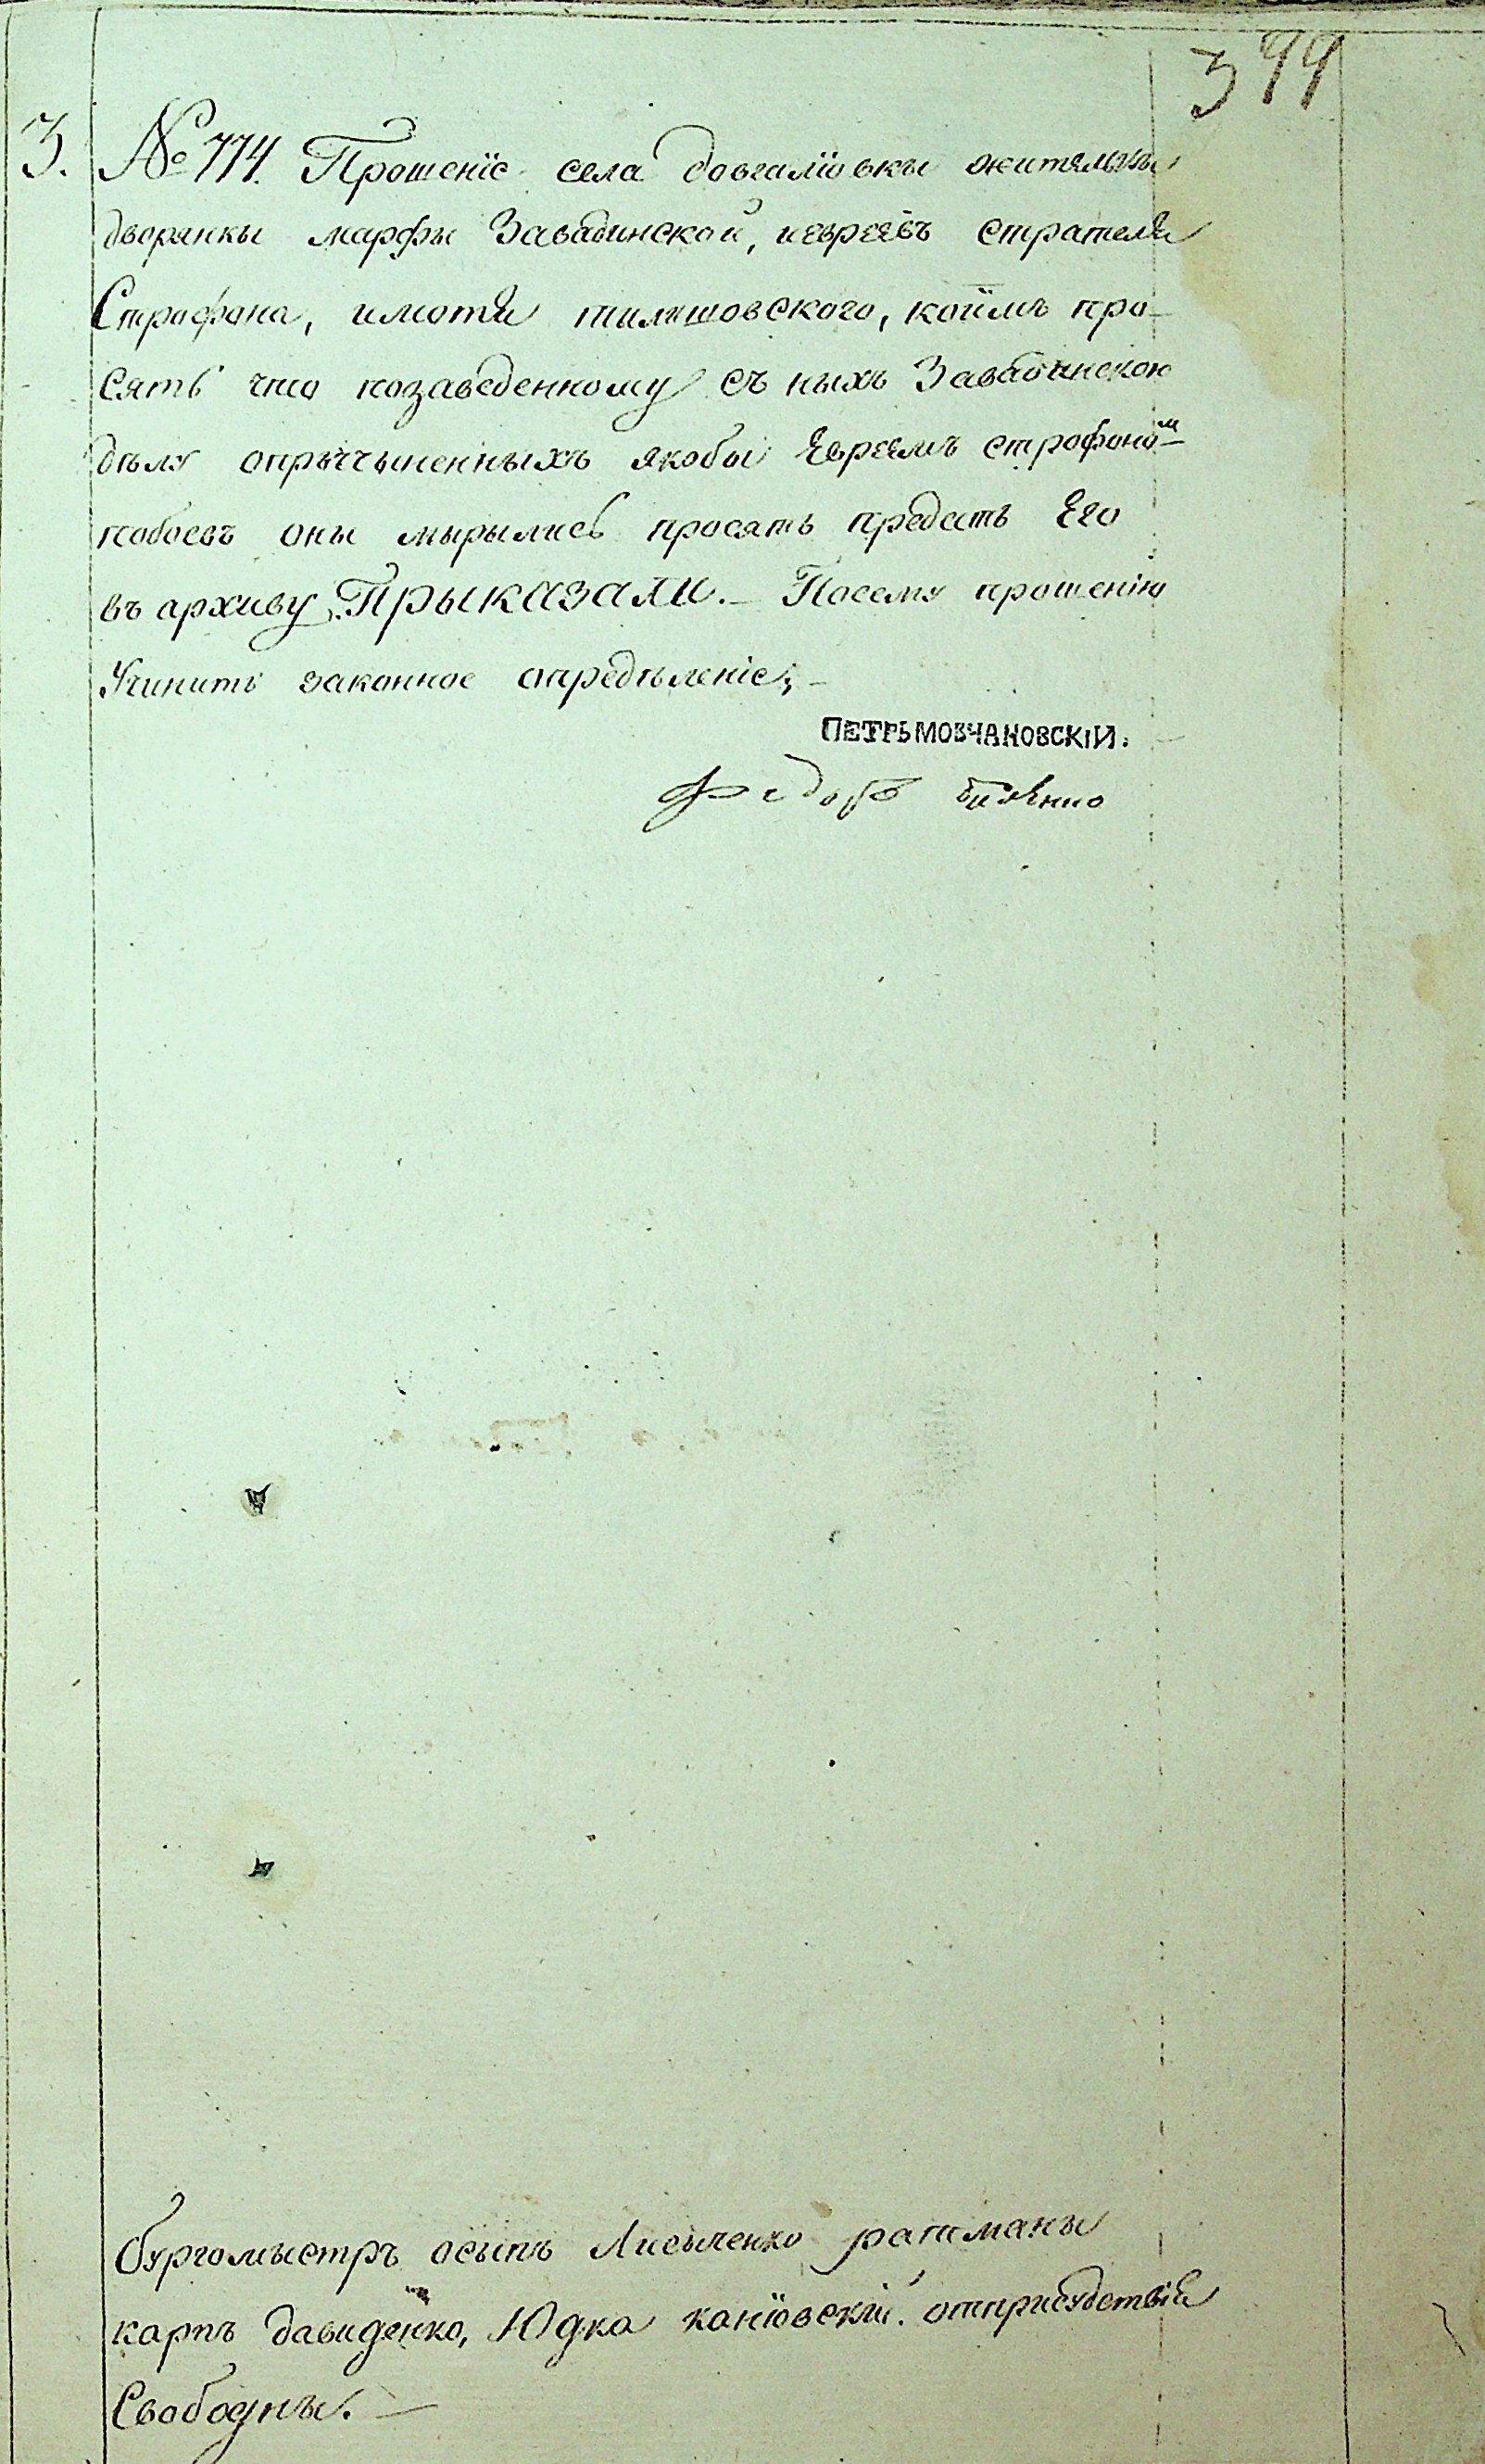 399
3. № 774. Прошеніе села довгалювкы жителькы
дворянкы марфы Завадинской, иевреевъ
Строфана, имотя тилишовского, коимъ про-
сятъ что позаведенному съ ныхъ Завадинскою
делу опрыччыненныхъ якобы Евреемъ строфаномъ
побоевъ оны мырылись просятъ предать Его
въ архиву, Прыказали. — Посему прошенію
Учинить законное определеніе; —
ПЕТРЬ МОВЧАНОВСКІЙ.
Федоръ
Бургомыстръ осыпъ Лисыченко ратманы
карпъ давиденко, Юдка канювскій. отприсудствія
Свободны. —